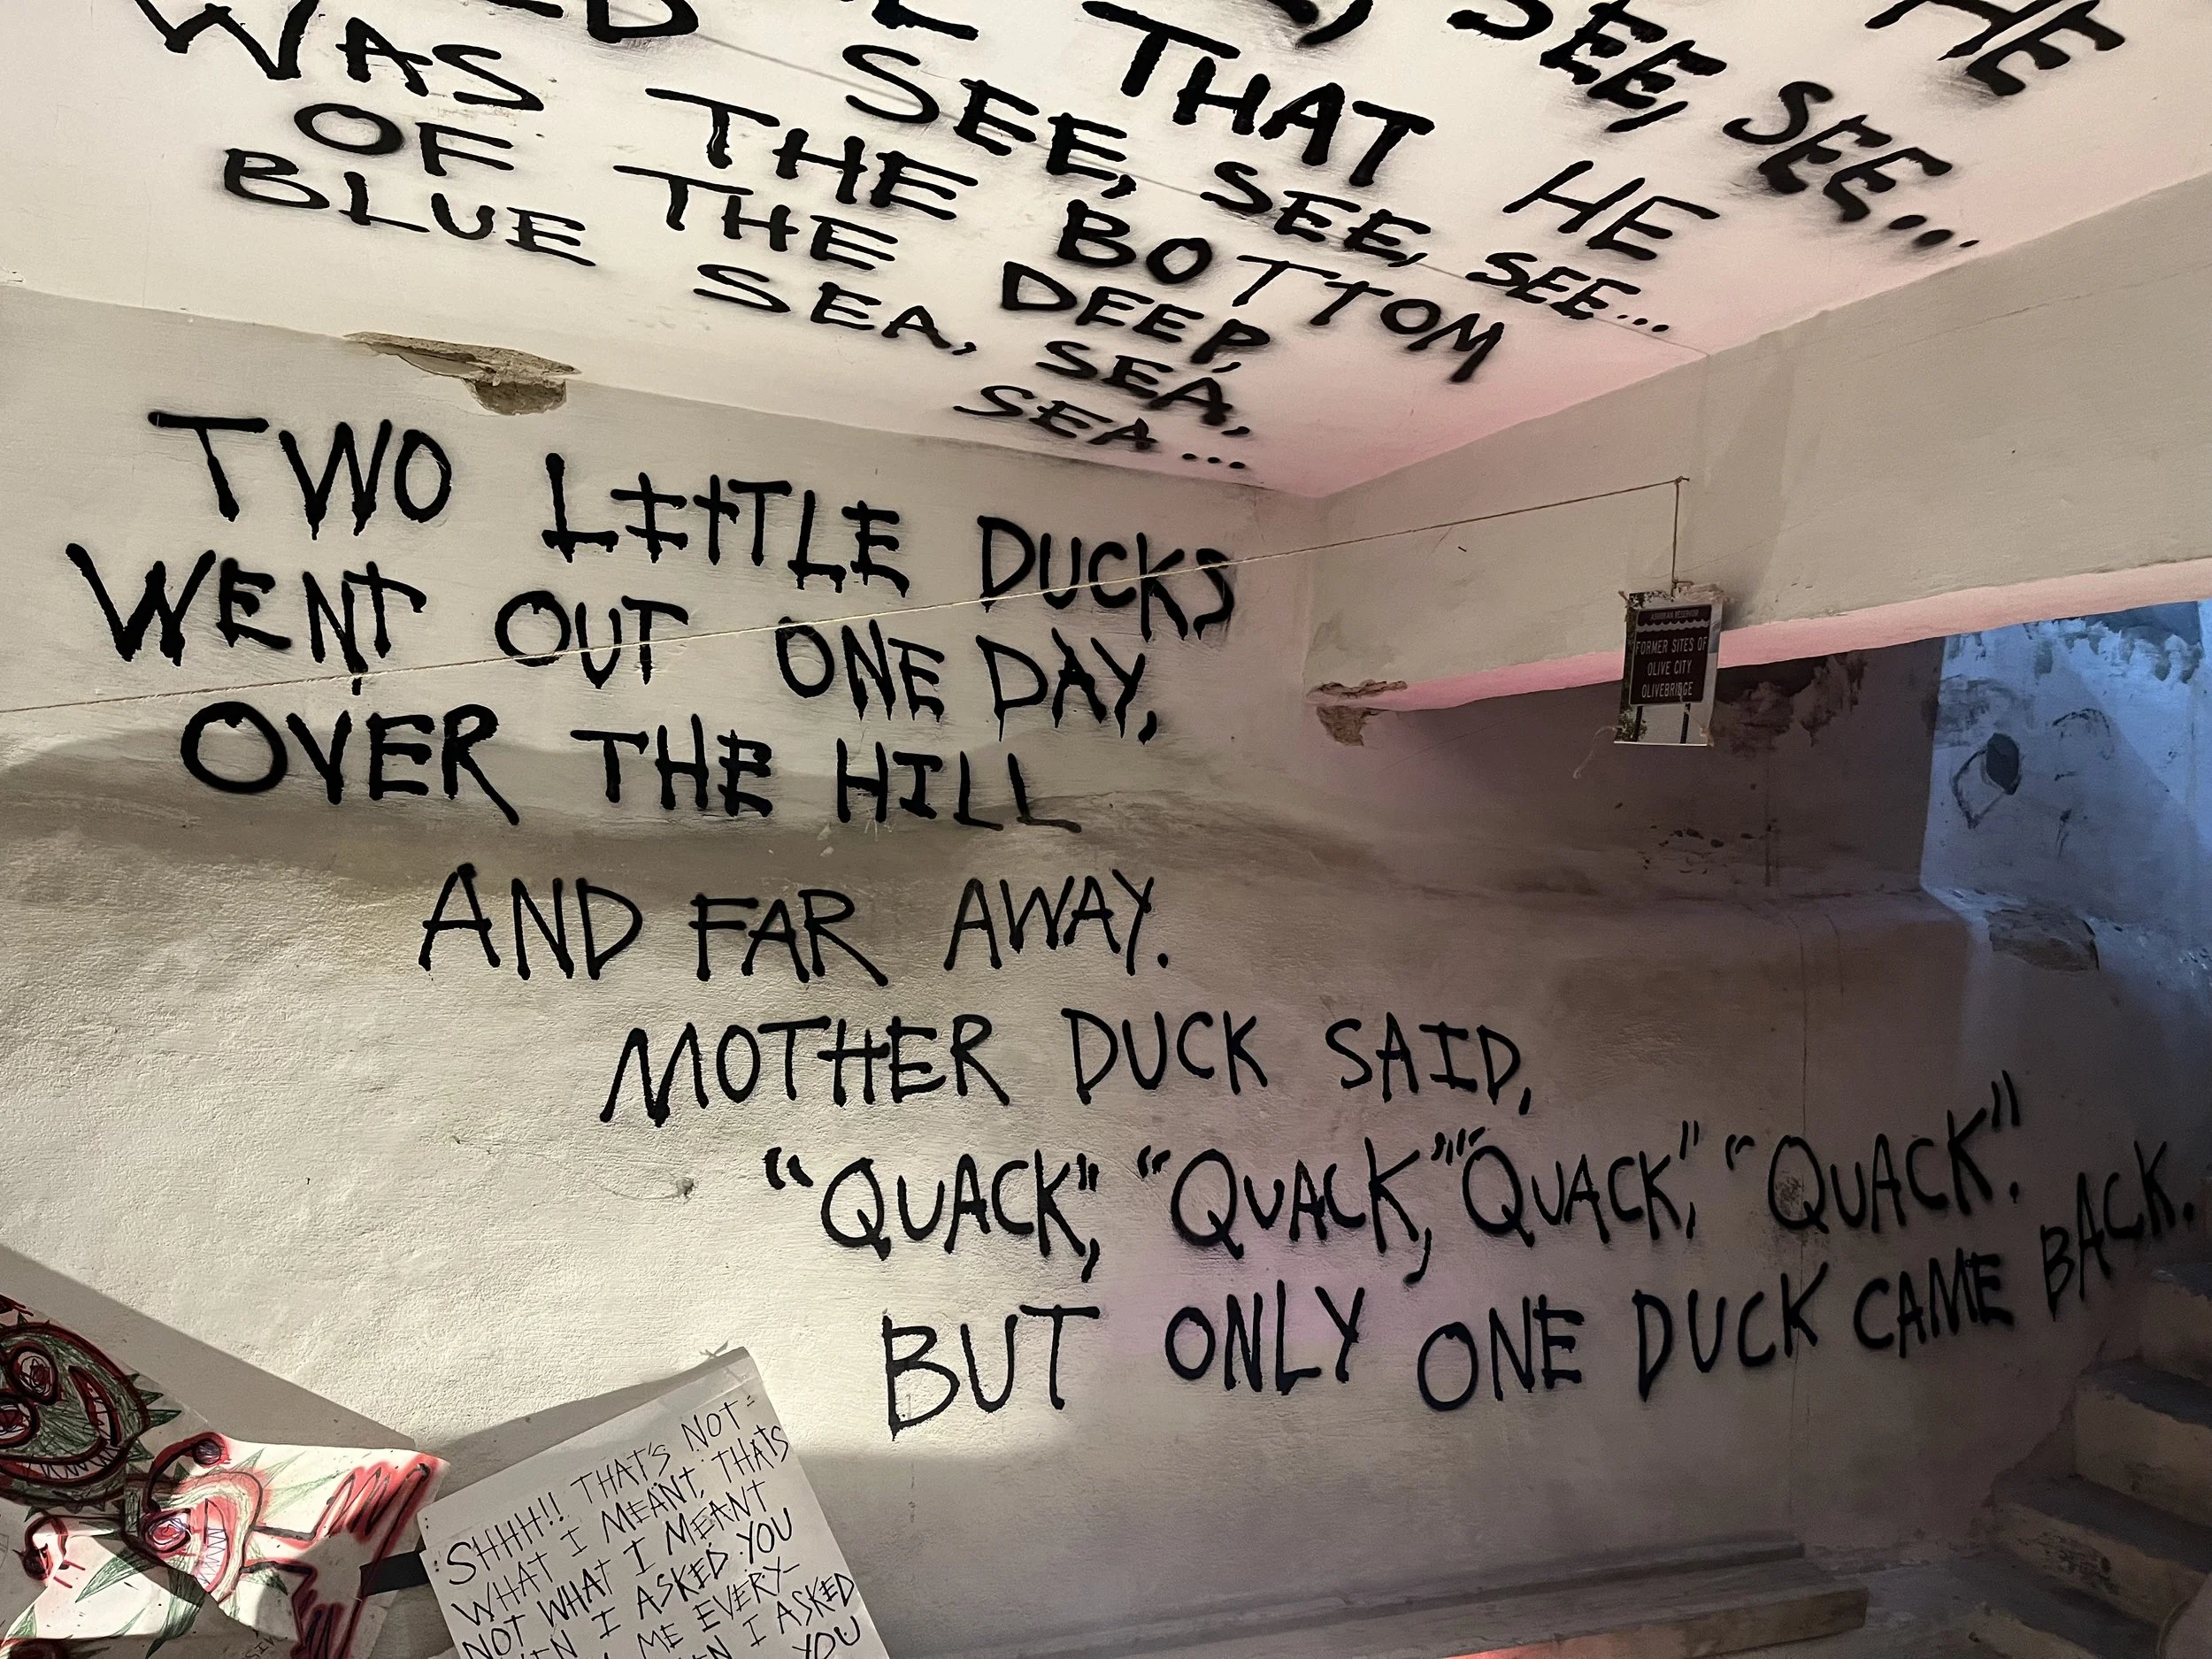 HE
SEE, SEE...
THAT HE
SEE, SEE, SEE...
WAS THE BOTTOM
OF THE DEEP,
BLUE SEA, SEA,
SEA...
TWO LITTLE DUCKS
WENT OUT ONE DAY,
OVER THE HILL
AND FAR AWAY.
MOTHER DUCK SAID,
"QUACK", "QUACK", "QUACK", "QUACK".
BUT ONLY ONE DUCK CAME BACK.
FORMER SITES OF
OLIVE CITY
OLIVEBRIDGE
SHHH!! THAT'S NOT
WHAT I MEANT, THATS
NOT WHAT I MEANT
I ASKED YOU
ME EVERY-
I ASKED
YOU